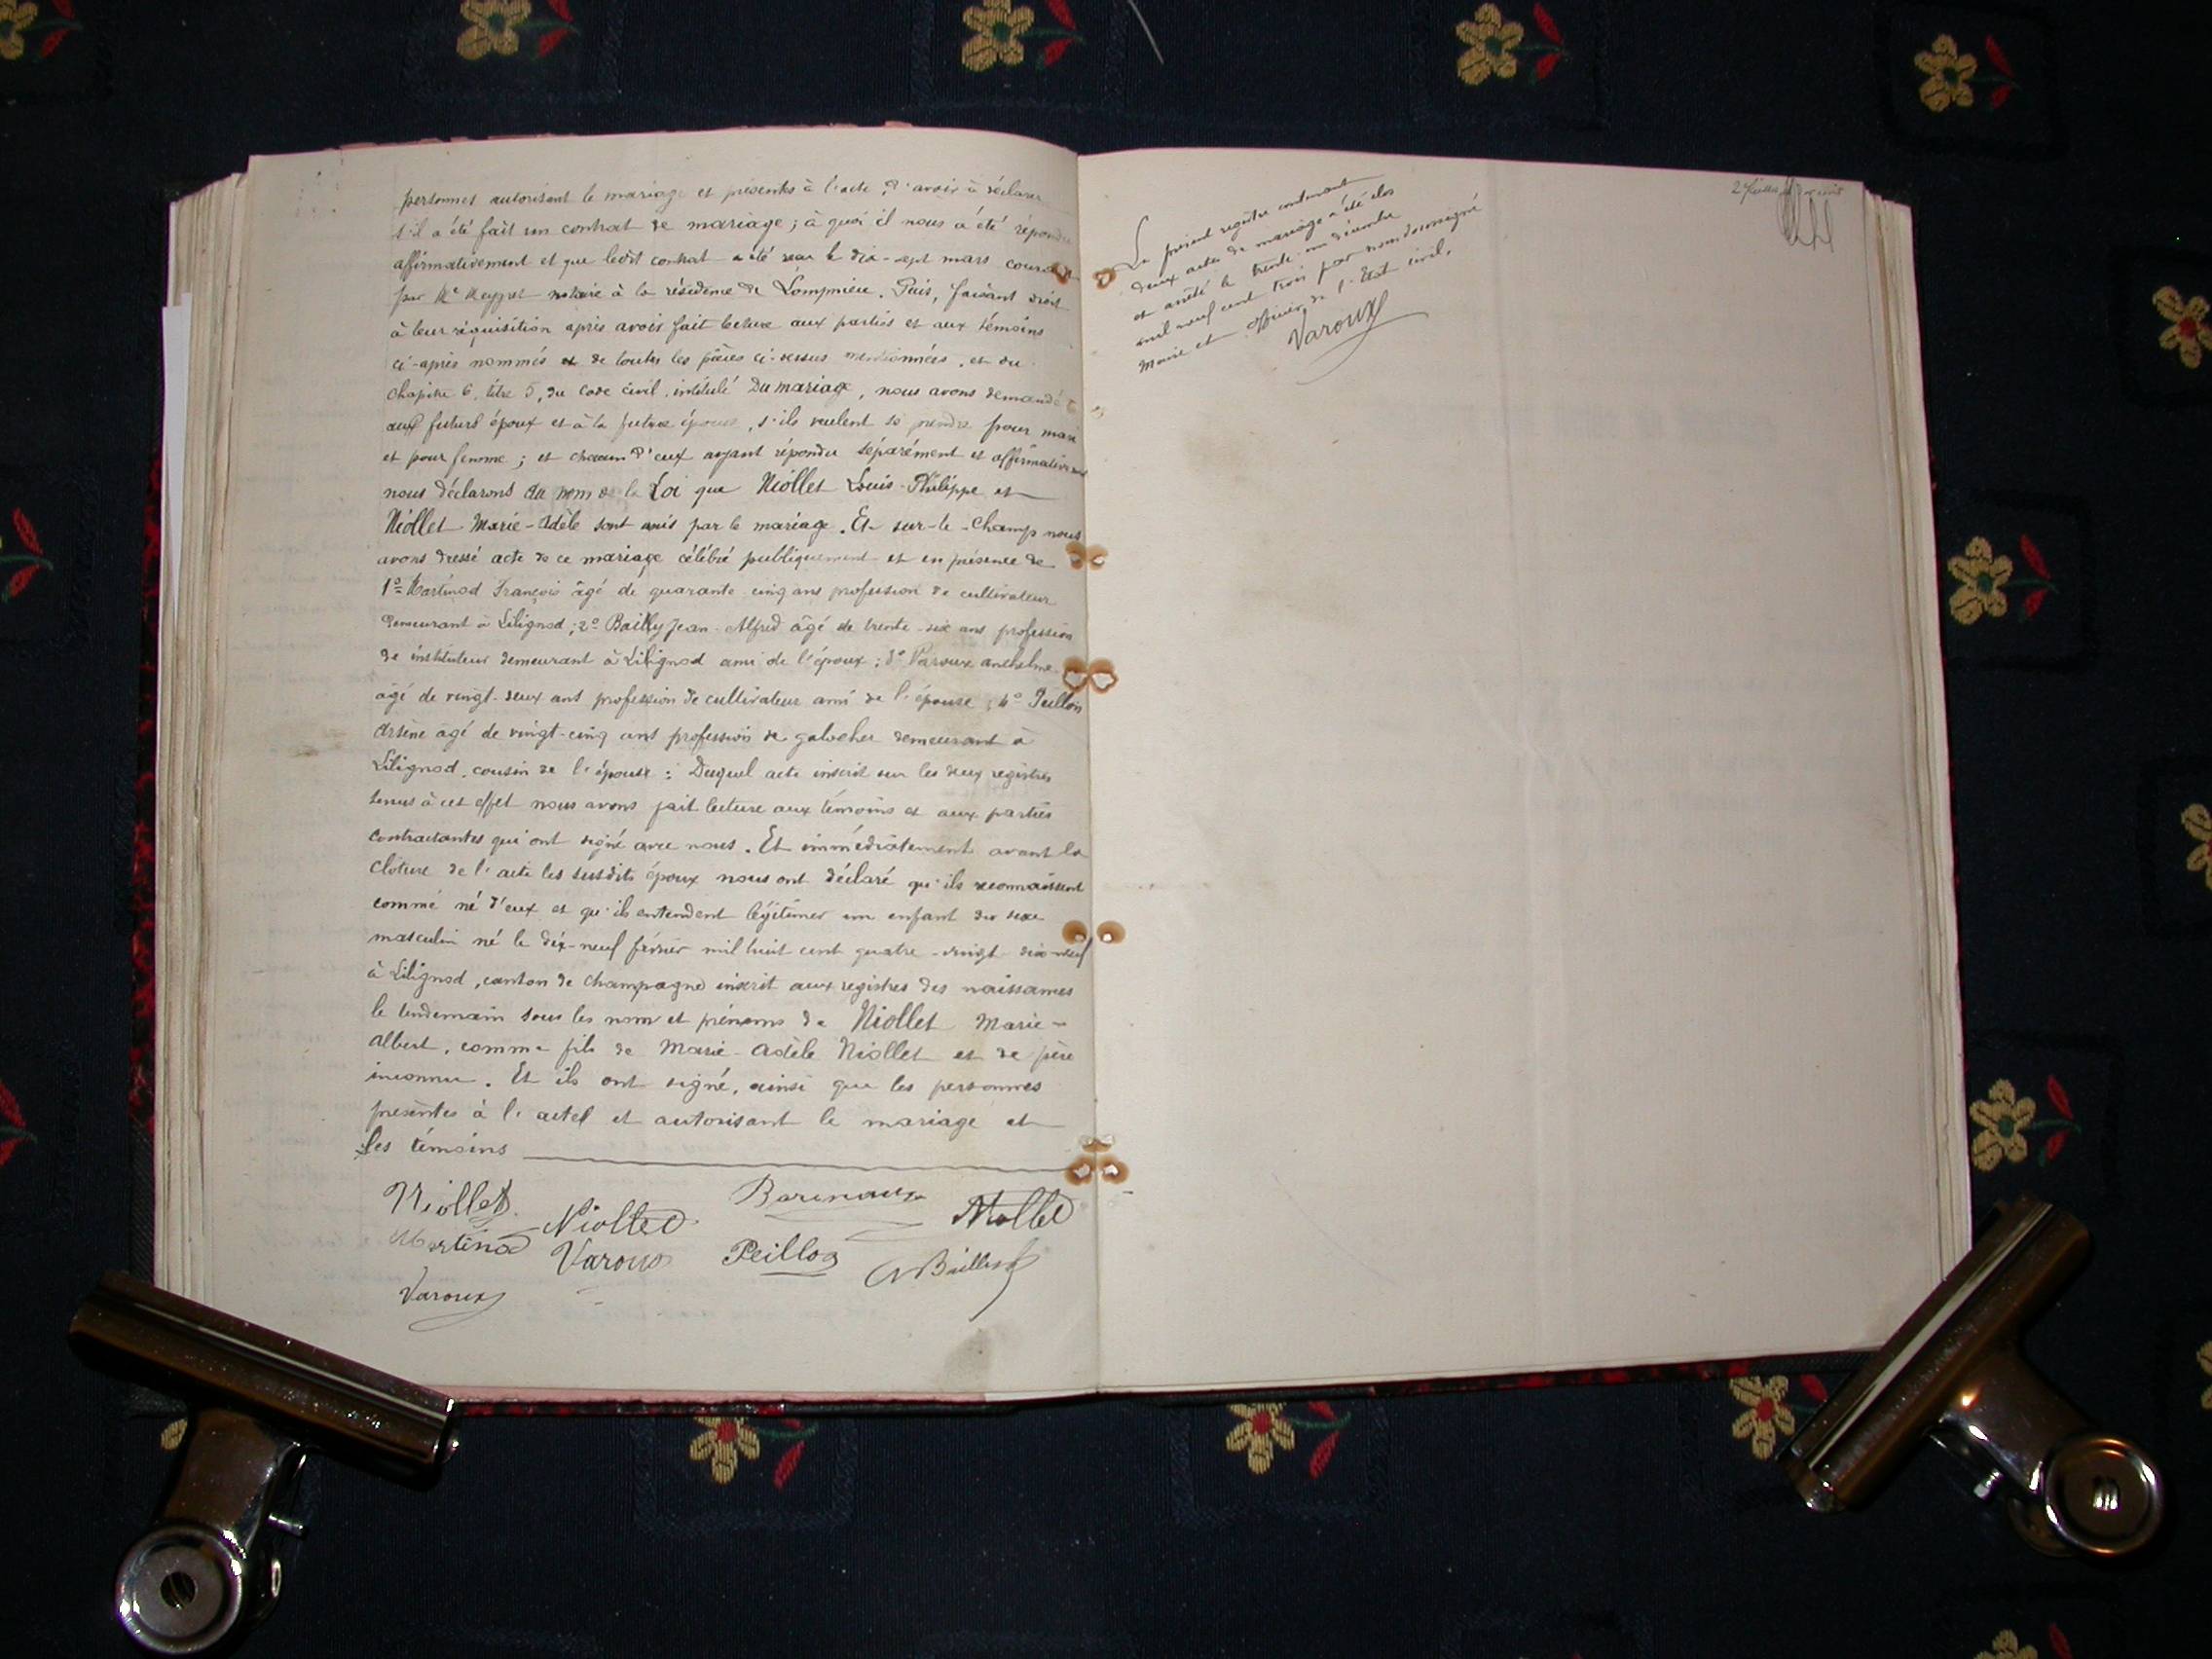 personnes autorisant le mariage et présents à l'acte, d'avoir à déclarer
s'il a été fait un contrat de mariage ; à quoi il nous a été répondu
affirmativement et que ledit contrat a été reçu le dix-sept mars courant
par Me notaire à la résidence de Lompnieu. Puis, faisant droit
à leur réquisition après avoir fait lecture aux parties et aux témoins
ci-après nommés de toutes les pièces ci-dessus mentionnées, et du
chapitre 6, titre 5, du Code civil, intitulé Du mariage, nous avons demandé
aux futurs époux et à la future épouse, s'ils veulent se prendre pour mari
et pour femme ; et chacun d'eux ayant répondu séparément et affirmativement
nous déclarons au nom de la Loi que Niollet Louis-Philippe et
Niollet Marie-Adèle sont unis par le mariage. Et sur-le-champ nous
avons dressé acte de ce mariage célébré publiquement et en présence de
1º Martinod François âgé de quarante-cinq ans profession de cultivateur
demeurant à Lilignod ; 2º Bailly Jean-Alfred âgé de trente-six ans profession
de instituteur demeurant à Lilignod ami de l'époux ; 3º Varoux anthelme
âgé de vingt-deux ans profession de cultivateur ami de l'épouse ; 4º Peillon
Arsène âgé de vingt-cinq ans profession de galocher demeurant à
Lilignod, cousin de l'épouse : Duquel acte inscrit sur les deux registres
tenus à cet effet nous avons fait lecture aux témoins et aux parties
contractantes qui ont signé avec nous. Et immédiatement avant la
clôture de l'acte les susdits époux nous ont déclaré qu'ils reconnaissent
comme né d'eux et qu'ils entendent légitimer un enfant du sexe
masculin né le dix-neuf février mil huit cent quatre-vingt dix-neuf
à Lilignod, canton de Champagne inscrit aux registres des naissances
le lendemain sous les nom et prénoms de Niollet Marie-
albert, comme fils de Marie-Adèle Niollet et de père
inconnu. Et ils ont signé, ainsi que les personnes
présentes à l'acte et autorisant le mariage et
les témoins
Niollet Niollet Niollet
Martinod Varoux Peillon Bailly
Varoux
Le présent registre contenant
deux actes de mariage a été clos
et arrêté le trente-un décembre
mil neuf cent trois par nous soussigné
Maire et Officier de l'Etat civil.
Varoux